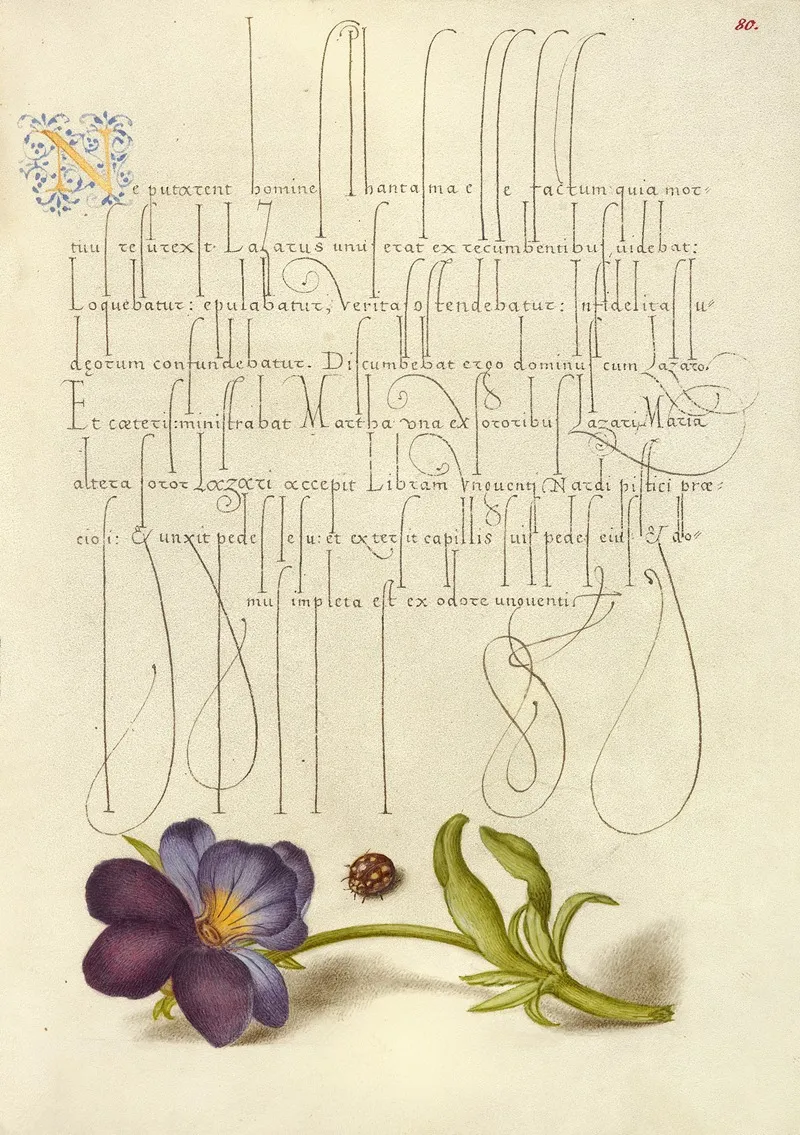 80.
Ne putarent homines phantasma esse factum quia mor=
tuus resurexit. Lazarus unus erat ex recumbentibus, uidebat:
Loquebatur: epulabatur, Veritas ostendebatur: Infidelitas Iu=
deorum confundebatur. Discumbebat ergo dominus cum Lazaro.
Et cæteris: ministrabat Martha vna ex sororibus Lazari, Maria
altera soror Lazari accepit Libram Vnguenti Nardi pistici præ=
ciosi: & unxit pedes Iesu: et extersit capillis suis pedes eius. & do=
mus impleta est ex odore unguenti